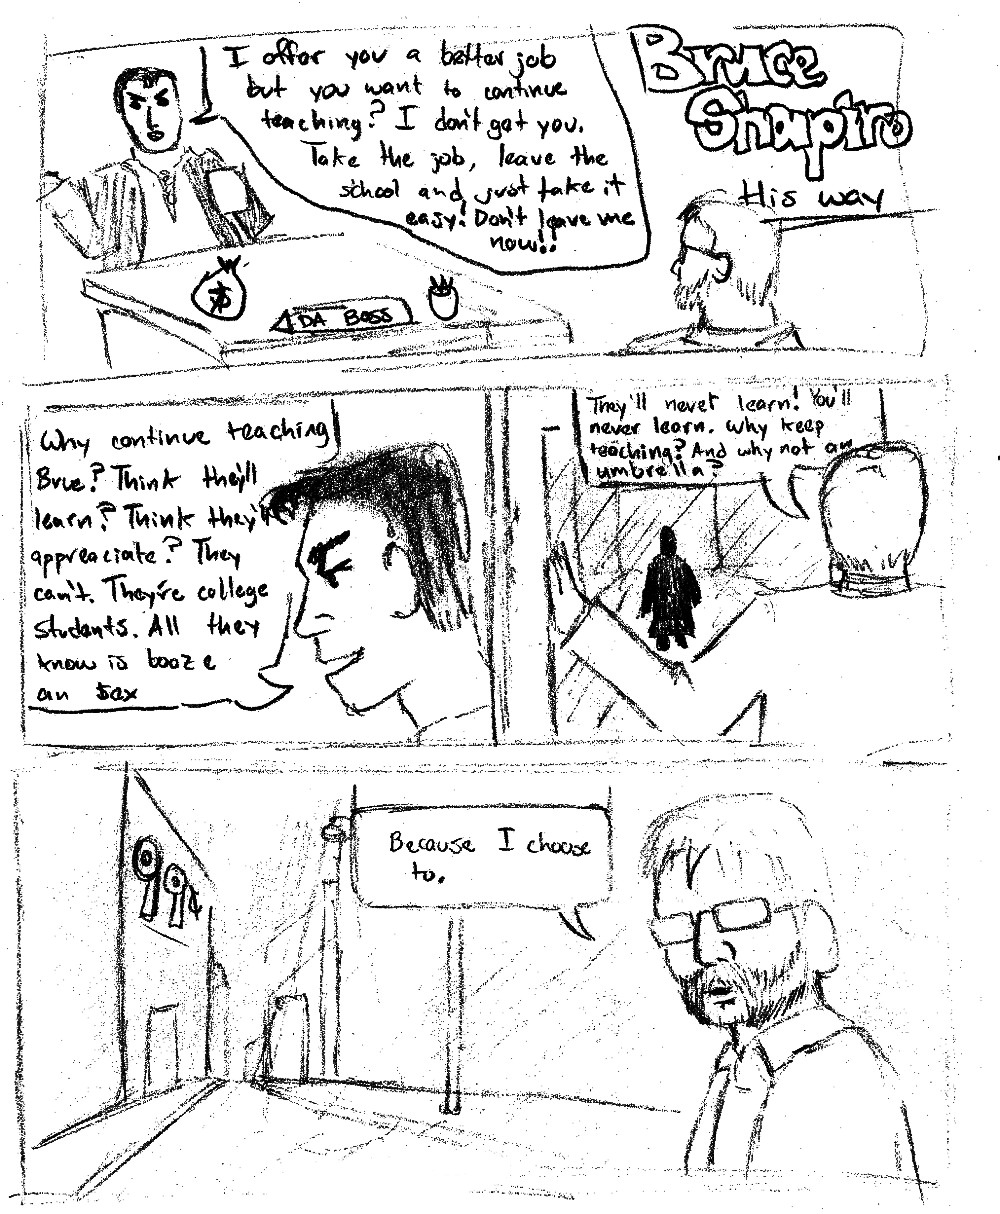 Bruce
Shapiro
His way
I offer you a better job
but you want to continue
teaching? I don't get you.
Take the job, leave the
school and just take it
easy! Don't leave me
now!!
$
DA BOSS
Why continue teaching
Brue? Think they'll
learn? Think they'll
appreaciate? They
can't. They're college
students. All they
know is booze
an sex
They'll never learn! You'll
never learn. Why keep
teaching? And why not an
umbrella?
Because I choose
to.